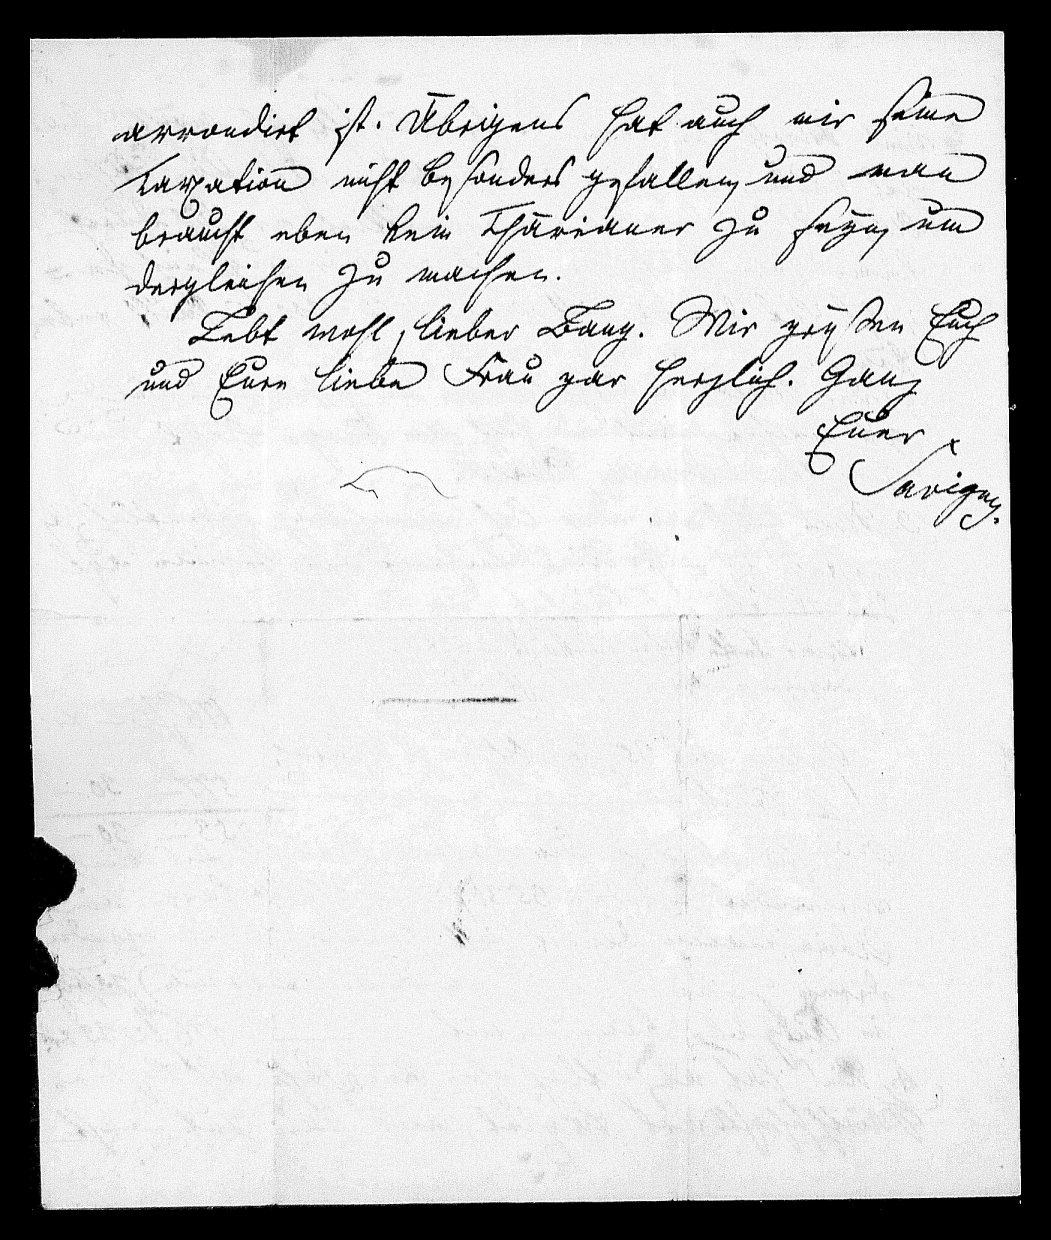 arrondirt ist. Übrigens hat auch mir seine
Taxation nicht besonders gefallen, und man
braucht eben kein Thärianer zu seyn, um
dergleichen zu machen.
Lebt wohl, lieber Bang. Wir grüßen Euch
und Eure liebe Frau gar herzlich. Ganz
Euer
Savigny.